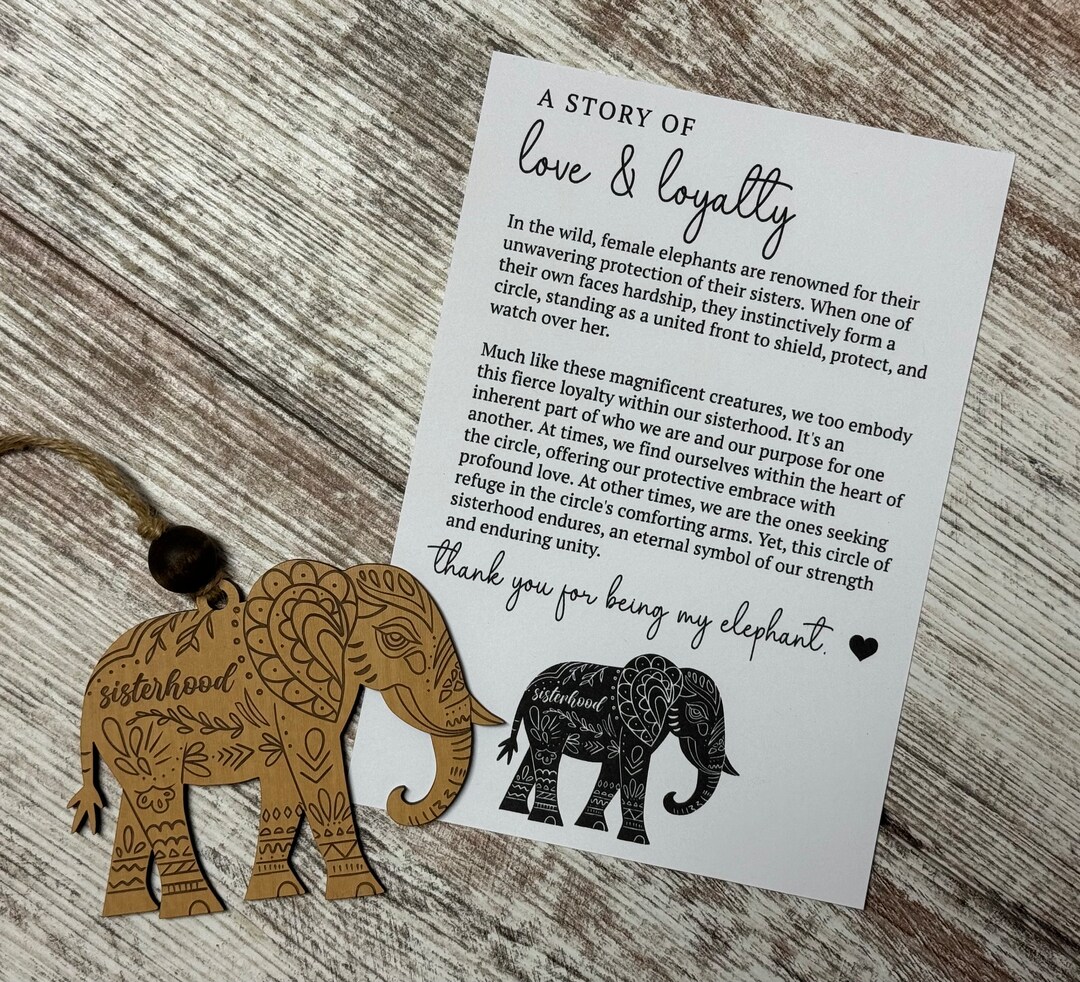 A STORY OF
love & loyalty
In the wild, female elephants are renowned for their
unwavering protection of their sisters. When one of
their own faces hardship, they instinctively form a
circle, standing as a united front to shield, protect, and
watch over her.
Much like these magnificent creatures, we too embody
this fierce loyalty within our sisterhood. It's an
inherent part of who we are and our purpose for one
another. At times, we find ourselves within the heart of
the circle, offering our protective embrace with
profound love. At other times, we are the ones seeking
refuge in the circle's comforting arms. Yet, this circle of
sisterhood endures, an eternal symbol of our strength
and enduring unity.
thank you for being my elephant.
sisterhood
sisterhood